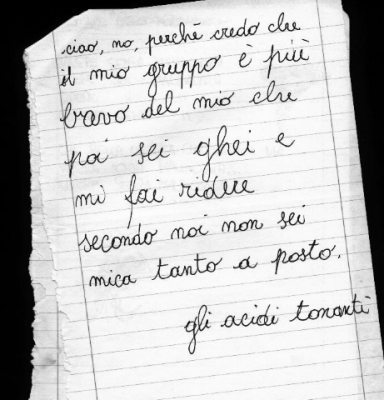 ciao, no, perché credo che
il mio gruppo è più
bravo del mio che
poi sei ghei e
mi fai ridere
secondo noi non sei
mica tanto a posto.
gli acidi tonanti